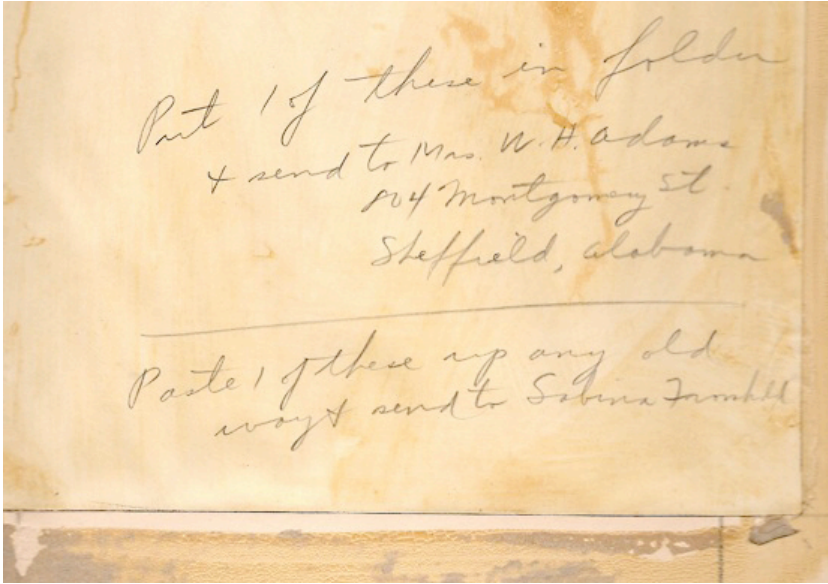 Put 1 of these in folder
& send to Mrs. W. H. Adams
804 Montgomery St.
Sheffield, Alabama
Paste 1 of these up any old
way & send to Sabina